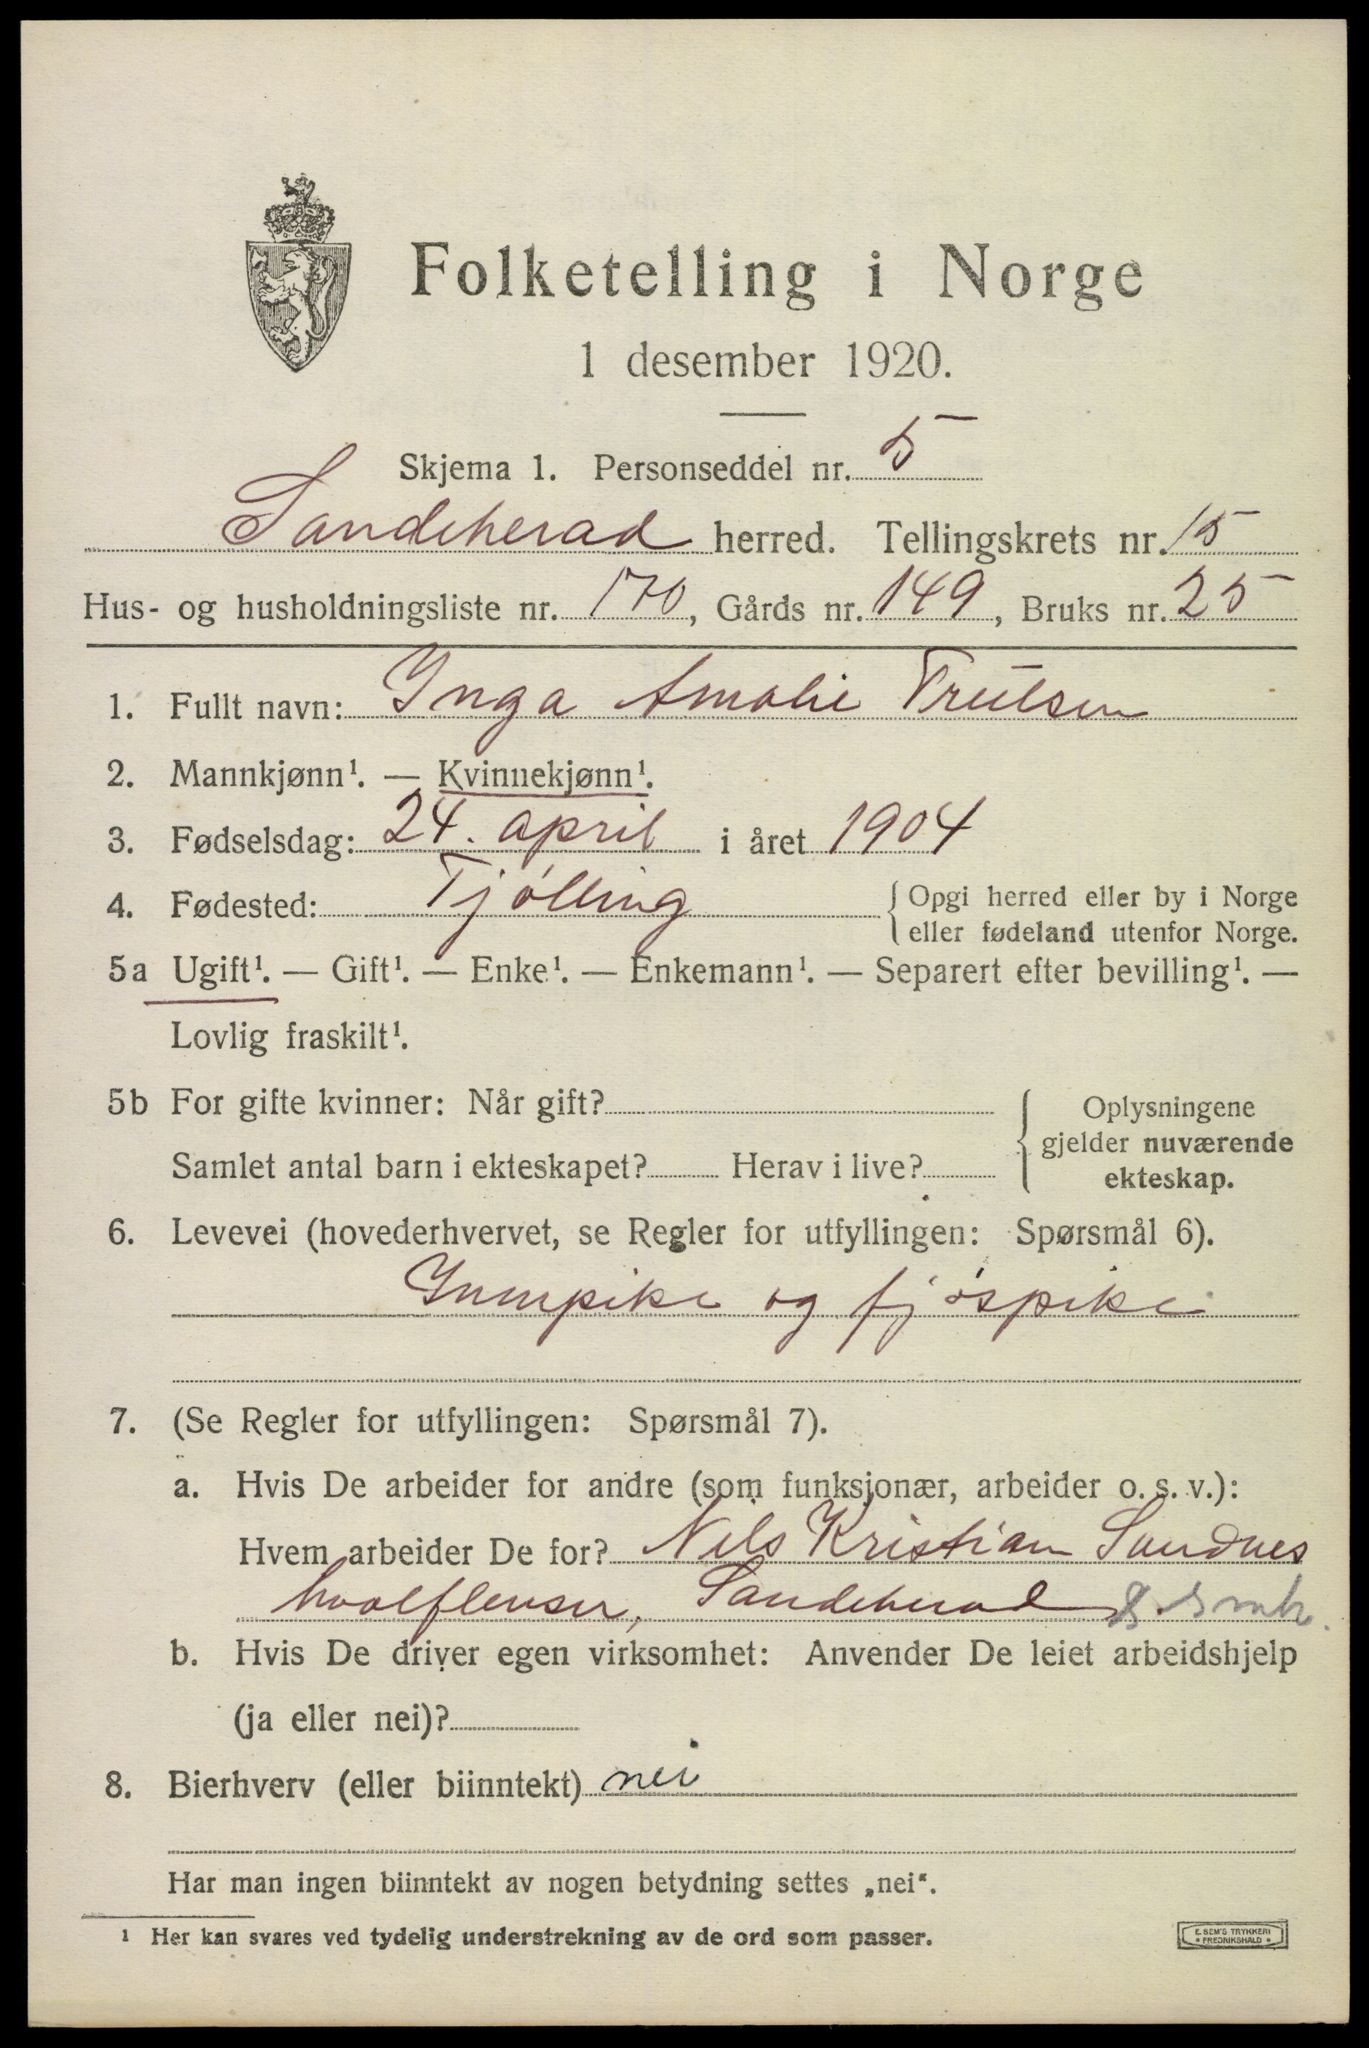 Folketelling i Norge
1 desember 1920.
Skjema 1. Personseddel nr. 5
Sandeherad herred. Tellingskrets nr. 15
Hus- og husholdningsliste nr. 170, Gårds nr. 149, Bruks nr. 25
1. Fullt navn: Inga Amalie Trulsen
2. Mannkjønn¹. — Kvinnekjønn¹.
3. Fødselsdag: 24. april i året 1904
4. Fødested: Tjølling { Opgi herred eller by i Norge
eller fødeland utenfor Norge.
5a Ugift¹. — Gift¹. — Enke¹. — Enkemann¹. — Separert efter bevilling¹. —
Lovlig fraskilt¹.
5b For gifte kvinner: Når gift? { Oplysningene
gjelder nuværende
Samlet antal barn i ekteskapet? Herav i live? ekteskap.
6. Levevei (hovederhvervet, se Regler for utfyllingen: Spørsmål 6).
Innepike og fjøspike
7. (Se Regler for utfyllingen: Spørsmål 7).
a. Hvis De arbeider for andre (som funksjonær, arbeider o. s. v.):
Hvem arbeider De for? Nils Kristian Sandnes
hvalflenser, Sandeherad
b. Hvis De driver egen virksomhet: Anvender De leiet arbeidshjelp
(ja eller nei)?
8. Bierhverv (eller biinntekt) nei
Har man ingen biinntekt av nogen betydning settes „nei“.
¹ Her kan svares ved tydelig understrekning av de ord som passer.
E. SEM'S TRYKKERI
FREDRIKSHALD